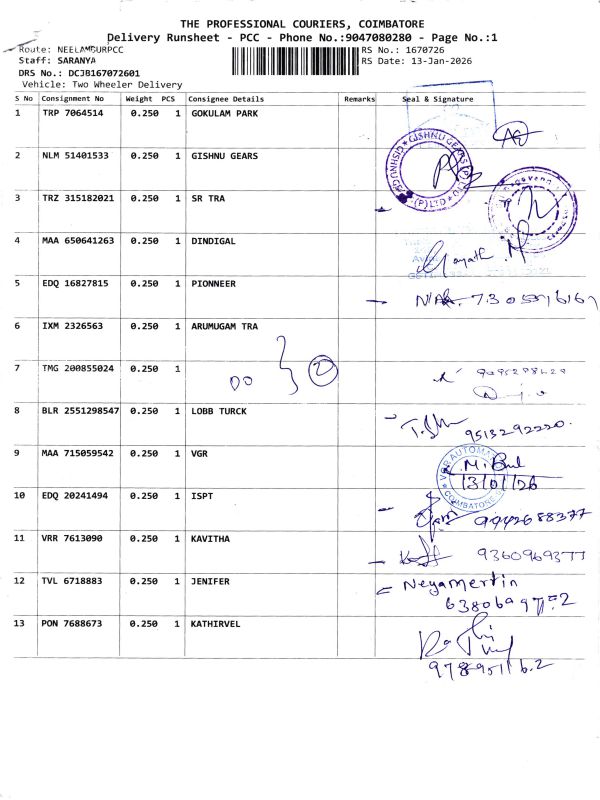 THE PROFESSIONAL COURIERS, COIMBATORE
Delivery Runsheet - PCC - Phone No.:9047080280 - Page No.:1
Route: NEELAMBURPCC
RS No.: 1670726
Staff: SARANYA
RS Date: 13-Jan-2026
DRS No.: DCJB167072601
Vehicle: Two Wheeler Delivery
S No Consignment No Weight PCS Consignee Details Remarks Seal & Signature
1 TRP 7064514 0.250 1 GOKULAM PARK
2 NLM 51401533 0.250 1 GISHNU GEARS
GISHNU GEARS (P) LTD
3 TRZ 315182021 0.250 1 SR TRA
4 MAA 650641263 0.250 1 DINDIGAL
5 EDQ 16827815 0.250 1 PIONNEER
6 IXM 2326563 0.250 1 ARUMUGAM TRA
7 TMG 200855024 0.250 1
DO 2
8 BLR 2551298547 0.250 1 LOBB TURCK
9513292220.
9 MAA 715059542 0.250 1 VGR
VGR AUTOMA
13/01/26
COIMBATORE
10 EDQ 20241494 0.250 1 ISPT
9942688377
11 VRR 7613090 0.250 1 KAVITHA
9360969377
12 TVL 6718883 0.250 1 JENIFER
Neyamertin
13 PON 7688673 0.250 1 KATHIRVEL